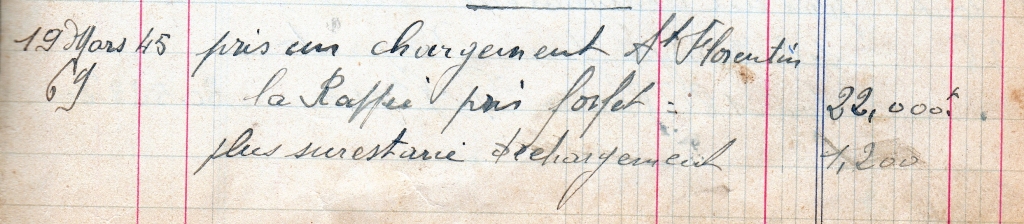 19 Mars 45 pris un chargement St Florentin
69 la Raffie pris forfet = 22,000f
plus surestarie déchargement 1,200